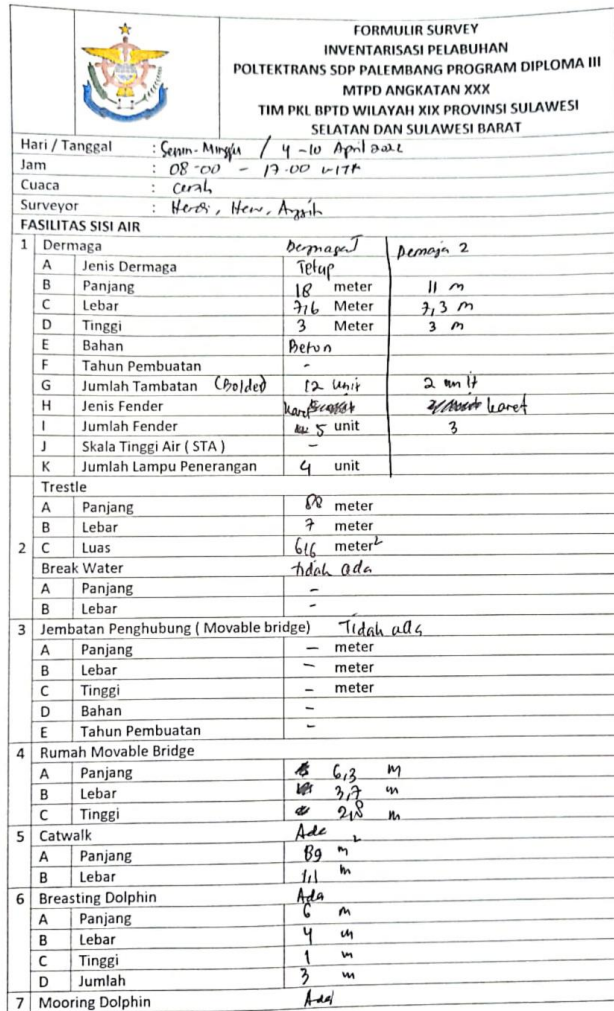 FORMULIR SURVEY
INVENTARISASI PELABUHAN
POLTEKTRANS SDP PALEMBANG PROGRAM DIPLOMA III
MTPD ANGKATAN XXX
TIM PKL BPTD WILAYAH XIX PROVINSI SULAWESI
SELATAN DAN SULAWESI BARAT
Hari / Tanggal : Senin - Minggu / 4 - 10 April 2022
Jam : 08.00 - 17.00 WITA
Cuaca : Cerah
Surveyor : Herdi,
FASILITAS SISI AIR
1 Dermaga Dermaga 1 Dermaga 2
A Jenis Dermaga Tetap
B Panjang 18 meter 11 m
C Lebar 7,6 Meter 7,3 m
D Tinggi 3 Meter 3 m
E Bahan Beton
F Tahun Pembuatan -
G Jumlah Tambatan (Bolder) 12 unit 2 unit
H Jenis Fender karet karet
I Jumlah Fender 5 unit 3
J Skala Tinggi Air ( STA ) -
K Jumlah Lampu Penerangan 4 unit
Trestle
A Panjang 88 meter
B Lebar 7 meter
2 C Luas 616 meter²
Break Water tidak ada
A Panjang -
B Lebar -
3 Jembatan Penghubung ( Movable bridge) Tidak ada
A Panjang - meter
B Lebar - meter
C Tinggi - meter
D Bahan -
E Tahun Pembuatan -
4 Rumah Movable Bridge
A Panjang 6,3 m
B Lebar 3,7 m
C Tinggi 2,8 m
5 Catwalk Ada 2
A Panjang 89 m
B Lebar 1,1 m
6 Breasting Dolphin Ada
A Panjang 6 m
B Lebar 4 m
C Tinggi 1 m
D Jumlah 3 m
7 Mooring Dolphin Ada